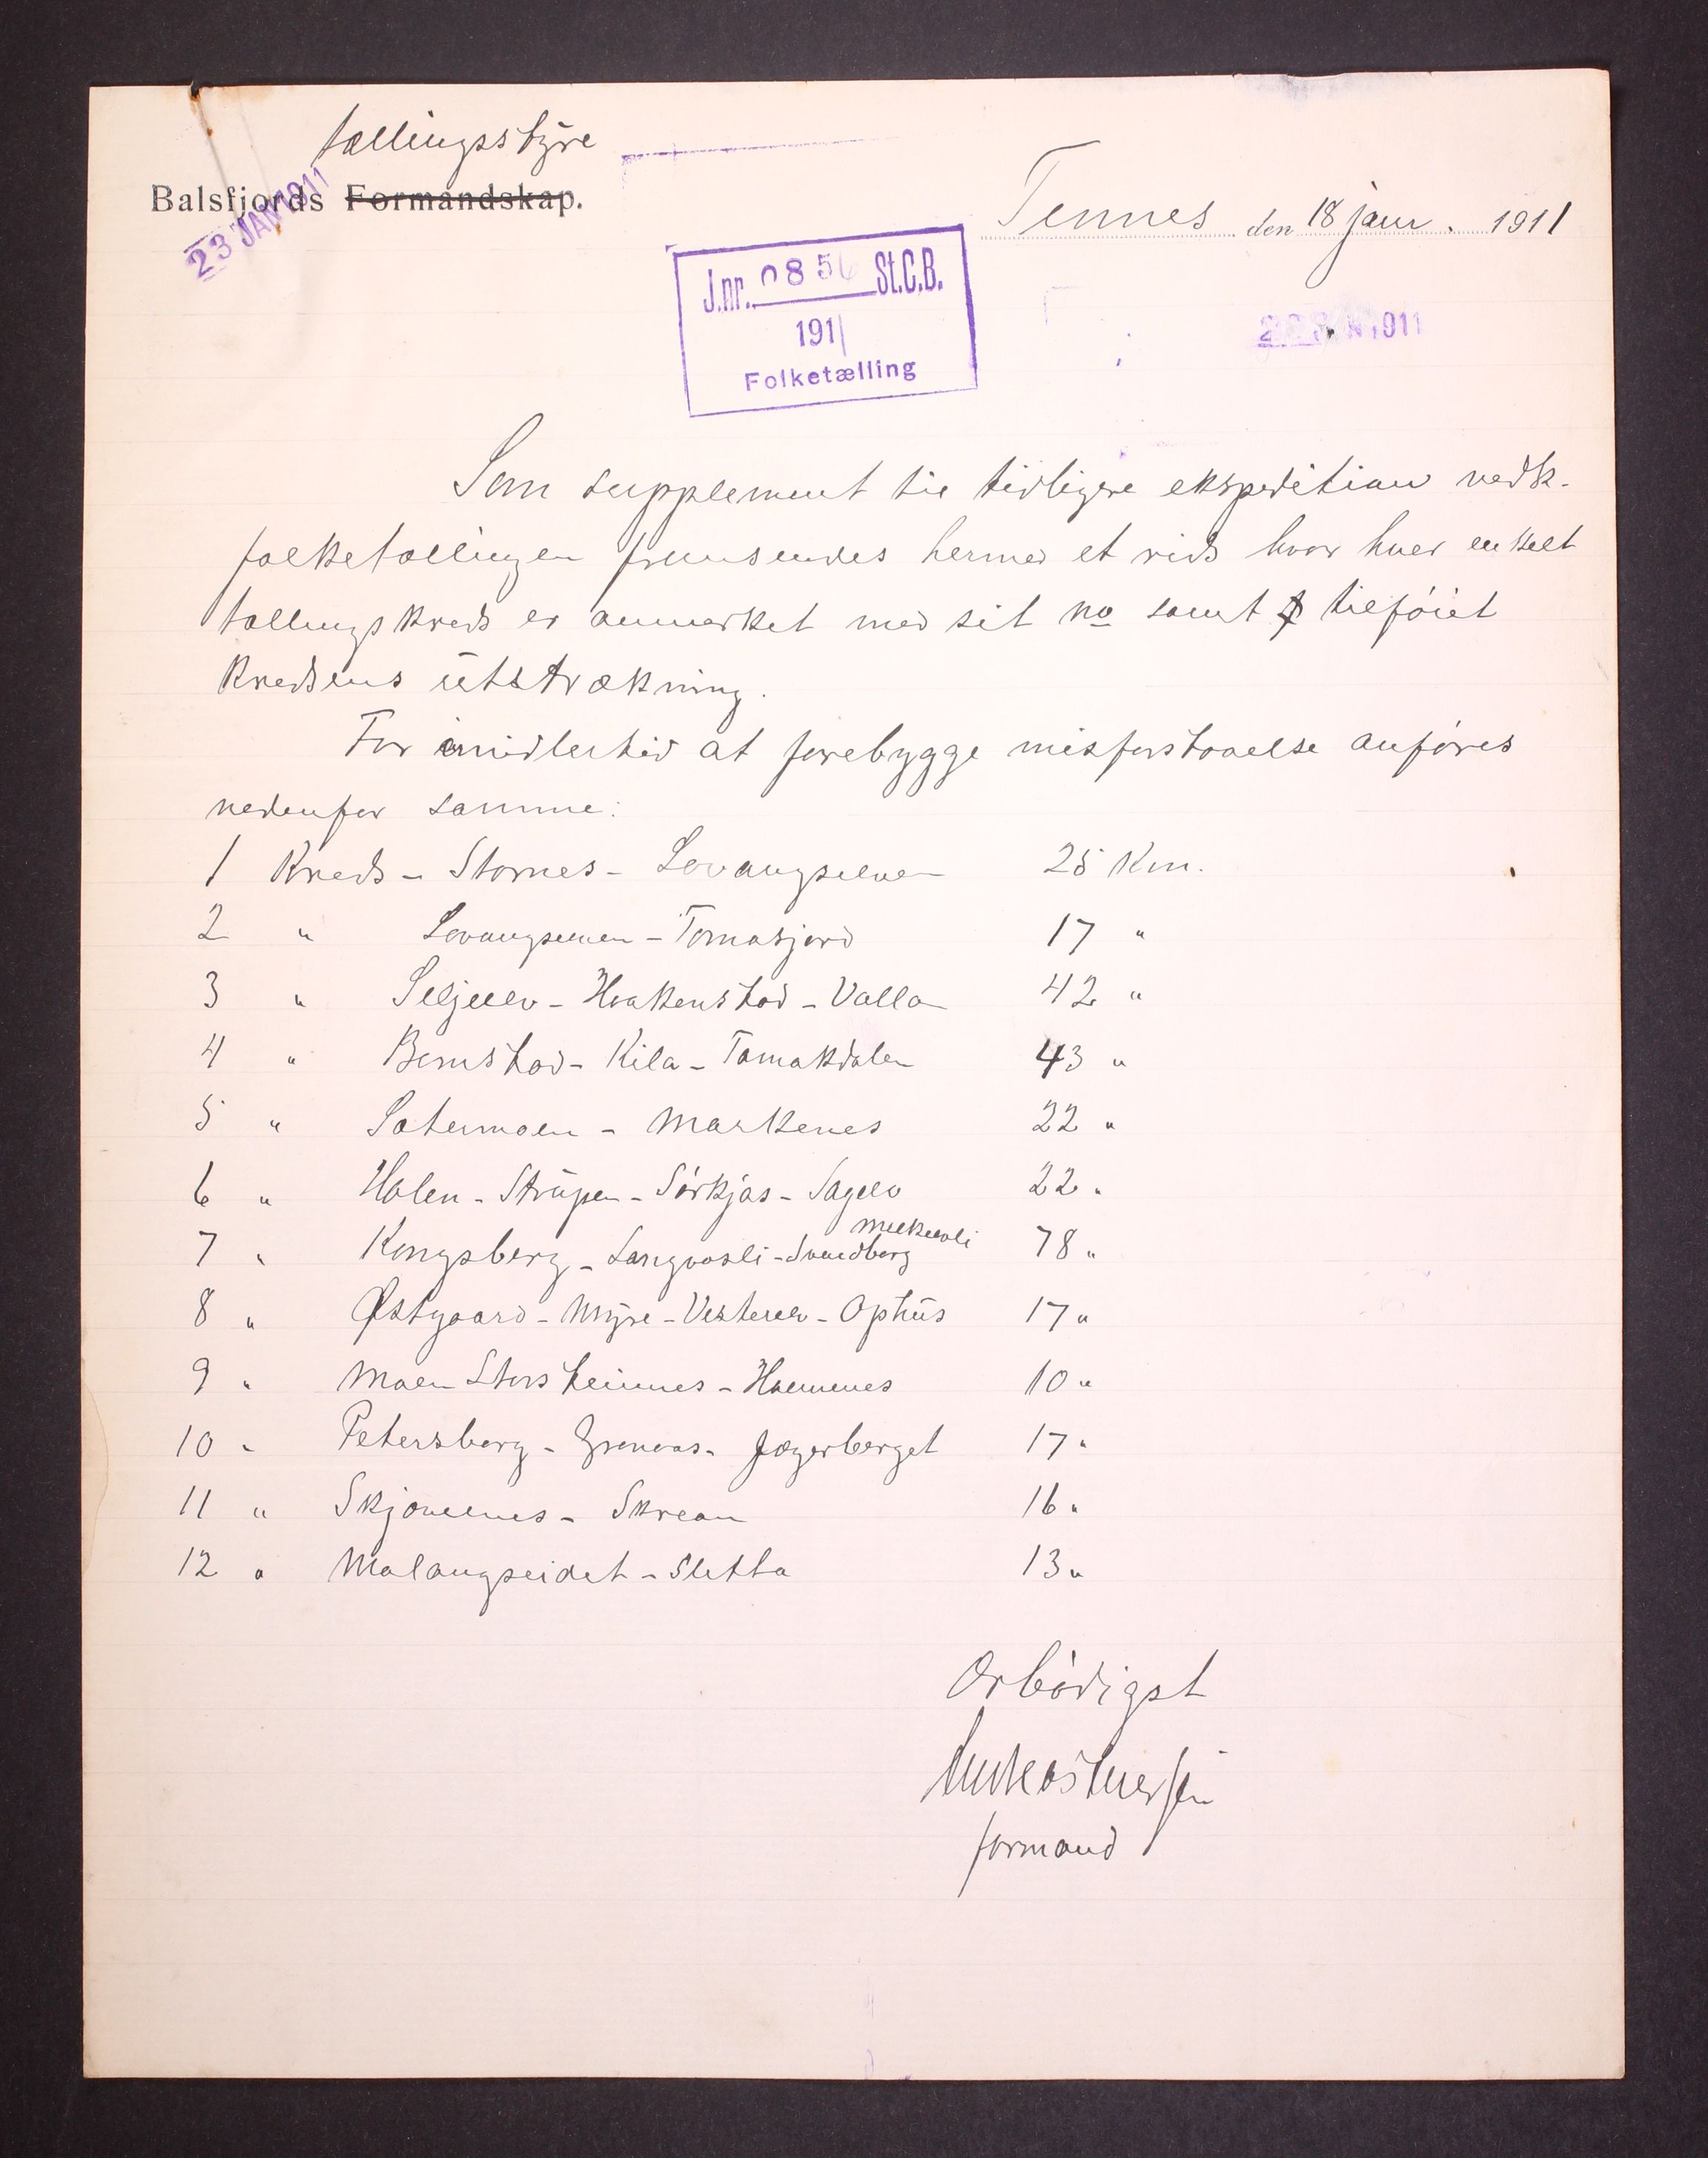 tællingsstyre
Balsfjords Formandskap.
23 JAN 1911
Tennes den 18 janr. 1911
J.nr. 0856 St.C.B.
1911
Folketælling
23 JAN 1911
Som supplement til tidligere ekspedition vedk.
folketællingen fremsendes hermed et rids hvor hver enkelt
tællingskreds er anmerket med sit no samt tilføiet
kredsens utstrækning.
For imidlertid at forebygge misforstaaelse anføres
nedenfor samme:
1 Kreds - Stornes - Lovangselven 25 Km.
2 " Lovangselven - Tomasjord 17 "
3 " Seljeelv - Haakenstad - Valla 42 "
4 " Bomstad - Kila - Tamokdalen 43 "
5 " Sætermoen - Markenes 22 "
6 " Holen - Strupen - Sørkjos - Sagelv 22 "
7 " Kongsberg - Langvasli - Svendborg melkeelvli 78 "
8 " Østgaard - Myre - Vesterelv - Ophus 17 "
9 " Moen Storsteinnes - Hamnes 10 "
10 " Petersborg - Grønaas - Jægerberget 17 "
11 " Skjævelnes - Skrean 16 "
12 " Malangseidet - Sletta 13 "
Ærbødigst
formand